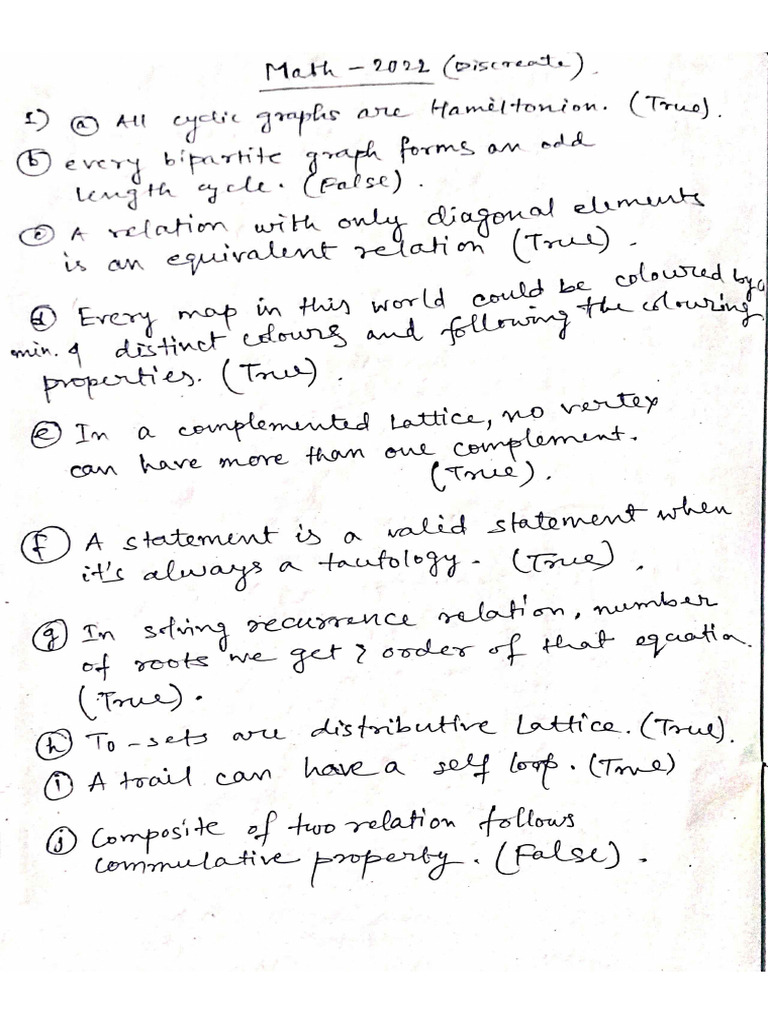 Math - 2022 (Discreate).
1) (a) All cyclic graphs are Hamiltonion. (True).
(b) every bipartite graph forms an odd
length cycle. (False).
(c) A relation with only diagonal elements
is an equivalent relation (True).
(d) Every map in this world could be coloured by
min. 4 distinct colours and following the colouring
properties. (True).
(e) In a complemented Lattice, no vertex
can have more than one complement.
(True).
(f) A statement is a valid statement when
it's always a tautology. (True).
(g) In solving recurrence relation, number
of roots we get order of that equation.
(True).
(h) To-sets are distributive Lattice. (True).
(i) A trail can have a self loop. (True)
(j) Composite of two relation follows
commulative property. (False).